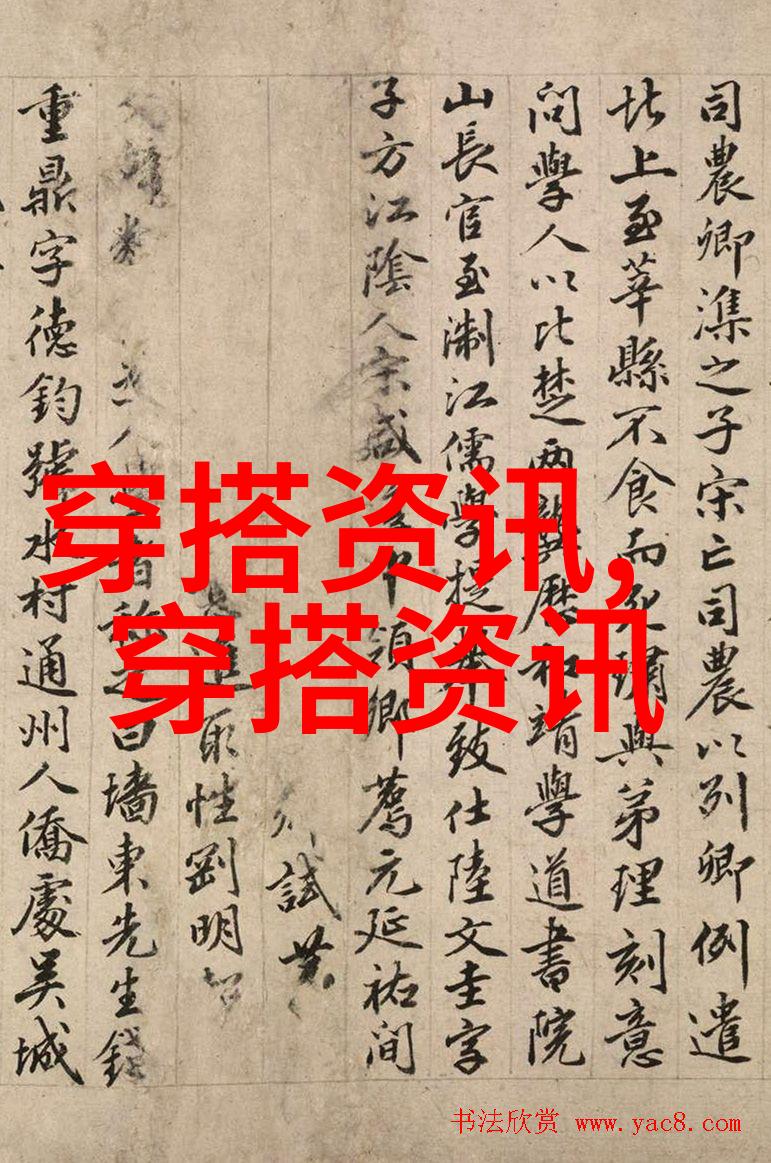 司農卿潗之子宋亡司農以列卿例遣
北上至莘縣不食而死璛與弟理刻意
問學人以比楚兩龔歷和靖學道書院
山長官至淛江儒學提舉致仕陸文圭字
子方江陰人宋咸中領鄉薦元延祐間
試
進取性剛明
人者稱之曰墻東先生錢
重鼎字德鈞號水村通州人僑處吳城
穿搭资讯,
穿搭资讯
书法欣赏 www.yac8.com